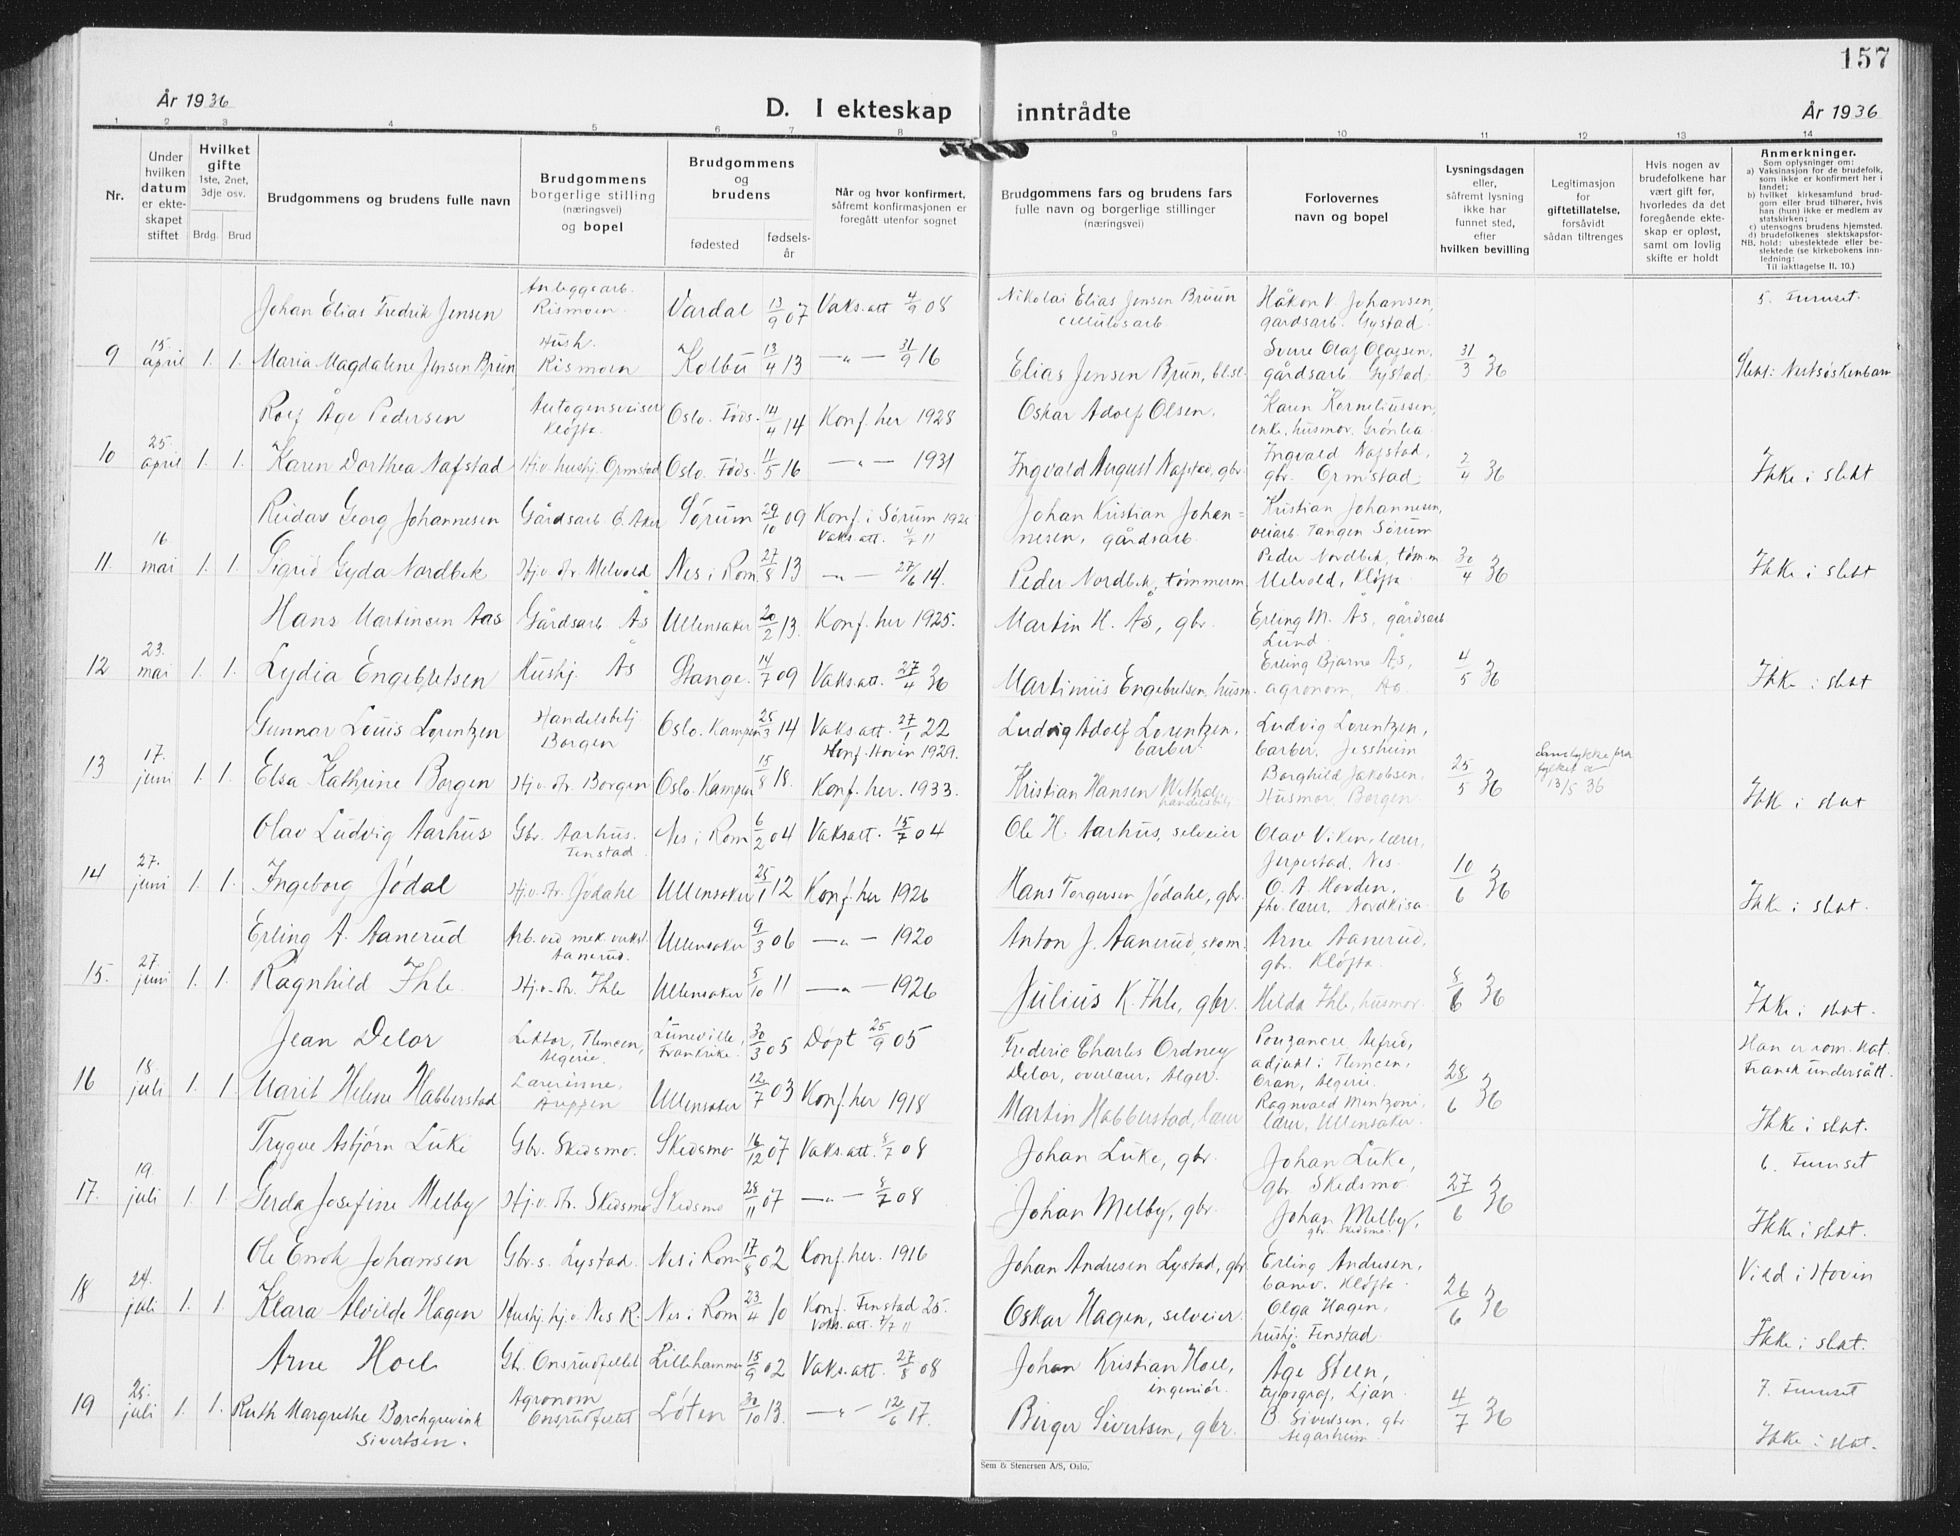 157
År 1936
D. I ekteskap inntrådte
År 1936
1 2 3 4 5 6 7 8 9 10 11 12 13 14
Nr.
Under hvilken datum er ekteskapet stiftet
Hvilket gifte
1ste, 2net, 3dje osv.
Brdg. Brud
Brudgommens og brudens fulle navn
Brudgommens borgerlige stilling (næringsvei) og bopel
Brudgommens og brudens
fødested
fødselsår
Når og hvor konfirmert, såfremt konfirmasjonen er foregått utenfor sognet
Brudgommens fars og brudens fars fulle navn og borgerlige stillinger (næringsvei)
Forlovernes navn og bopel
Lysningsdagen eller, såfremt lysning ikke har funnet sted, efter hvilken bevilling
Legitimasjon for giftetillatelse, forsåvidt sådan tiltrenges
Hvis nogen av brudefolkene har vært gift før, hvorledes da det foregående ekteskap er opløst, samt om lovlig skifte er holdt
Anmerkninger.
Som oplysninger om:
a) Vaksinasjon for de brudefolk, som ikke er konfirmert her i landet;
b) hvilket kirkesamfund brudgom eller brud tilhører, hvis han (hun) ikke er medlem av statskirken;
c) utensogns brudens hjemsted.
d) brudefolkenes slektskapsforhold: ubeslektede eller beslektede (se kirkebokens innledning:
NB.
Til iakttagelse II. 10.)
Johan Elias Fredrik Jensen Anleggsarb. Rismoen Vardal 13/9 07 Vaks.att 4/9 08 Nikolai Elias Jensen Bruun cellulosarb Håkon V. Johansen, gårdsarb. Gystad. 5. Furuset.
9 15. april 1. 1. Maria Magdalene Jensen Brun Hush. Rismoen Kolbu 13/4 13 —„— 31/9 16 Elias Jensen Brun, Sverre Olaf Olafsen, gårdsarb Gystad 31/3 36 Slekt: Nestsøskenbarn
Rolf Åge Pedersen Autogensveiser Kløfta. Oslo. Føds. 14/4 14 Konf. her 1928 Oskar Adolf Olsen. Karen Korneliussen, enke, husmor. Grønlia
10 25. april 1. 1. Karen Dorthea Nafstad Hj.v. hushj. Ormstad Oslo. Føds. 11/5 16 —„— 1931 Ingvald August Nafstad, gbr. Ingvald Nafstad, gbr. Ormstad 2/4 36 Ikke i slekt
Reidar Georg Johannesen Gårdsarb. Ø. Aker Sørum 29/10 09 Konf. i Sørum Vaks.att. Johan Kristian Johannesen, gårdsarb. Kristian Johannesen, veiarb. Tangen Sørum
11. 16. mai 1. 1. Sigrid Gyda Nordbek Hj.v. fr. Melvold Nes i Rom. 27/8 13 —„— 27/6 14. Peder Nordbek, tømmerm. Peder Nordbek, tømm Melvold, Kløfta. 30/4 36 Ikke i slekt
Hans Martinsen Aas Gårdsarb Ås Ullensaker 20/2 13. Konf. her 1925. Martin H. Ås, gbr. Erling M. Ås, gårdsarb Lund.
12 23. mai 1. 1. Lydia Engebretsen Hushj. Ås Stange. 14/7 09 Vaks.att. 27/4 36 Martinius Engebretsen, husm. Erling Bjarne Ås, agronom, Ås. 4/5 36 Ikke i slekt
Gunnar Louis Lorentzen Handelsbetj Borgen Oslo. Kampen 25/3 14 Vaks att. 27/1 22 Konf. Hovin 1929. Ludvig Adolf Lorentzen, barber. Ludvig Lorentzen, barber, Jessheim
13 17. juni 1. 1. Elsa Kathrine Borgen Hj.v. fr. Borgen Oslo. Kampen 15/8 18. Konf. her. 1933. Kristian Hansen handelsbetj Borghild Jakobsen, Husmor, Borgen. 25/5 36 Samtykke fra fylket a 13/5 36 Ikke i slekt
Olav Ludvig Aarhus Gbr. Aarhus. Fenstad. Nes i Rom 6/2 04 Vaks att. 15/7 04 Ole H. Aarhus, selveier Olav Viken, lærer, Jerpestad, Nes.
14 27. juni 1. 1. Ingeborg Jødal Hj.v. fr. Jødahl Ullensaker 25/1 12 Konf. her 1926 Hans Torgersen Jødahl, gbr. O. A. Hovden, fhv. lærer, Nordkisa. 10/6 36 Ikke i slekt.
Erling A. Aanerud Arb. ved mek. verkst. Aanerud. Ullensaker 9/3 06 —„— 1920 Anton J. Aanerud, skom. Arne Aanerud, gbr. Kløfta.
15. 27. juni 1. 1. Ragnhild Ihle. Hj.v. fr. Ihle Ullensaker 5/10 11 —„— 1926 Julius K. Ihle, gbr. Hilda Ihle, husmor. 8/6 36 Ikke i slekt.
Jean Delor Lektor, Tlemcen, Algerie. Luneville, Frankrike. 30/3 05 Døpt 25/9 05 Frederic Charles Ordney Delor, overlærer, Alger. Pouzancre Alfred, adjukt i Tlemcen, Oran, Algerie. Han er rom. kat. Fransk undersått.
16 18. juli 1. 1. Marit Helene Habberstad Lærerinne, Ullensaker 12/7 03 Konf. her 1918 Martin Habberstad, lærer Ragnvald Mentzoni, lærer, Ullensaker. 28/6 36 Ikke i slekt.
Trygve Asbjørn Luke Gbr. Skedsmo. Skedsmo 16/12 07 Vaks. att. 8/7 08 Johan Luke, gbr. Johan Luke, gbr. Skedsmo. 6. Furuset
17. 19. juli 1. 1. Gerda Josefine Melby Hj.v. fr. Skedsmo Skedsmo 28/11 07 —„— 8/7 08 Johan Melby, gbr. Johan Melby, gbr. Skedsmo. 27/6 36 Ikke i slekt.
Ole Enok Johansen Gbr.s. Lystad. Nes i Rom 17/8 02 Konf. her. 1916 Johan Andresen Lystad, gbr Erling Andresen, banev. Kløfta. Vild i Hovin
18 24. juli 1. 1. Klara Alvilde Hagen Hushj. hj.v. Nes R. Nes i Rom 23/4 10 Konf. Fenstad 25. Vaks. att. 7/7 11 Oskar Hagen, selveier. Olga Hagen, hushj. Fenstad. 26/6 36 Ikke i slekt.
Arne Hoel Gbr. Onsrudfeltet Lillehammer 15/9 02 Vaks. att. 27/8 08 Johan Kristian Hoel, ingeniør. Åge Steen, typograf, Ljan. 7. Furuset
19 25. juli 1. 1. Ruth Margrethe Borchgrevink Sivertsen. Agronom Onsrudfeltet Løten 30/10 13. —„— 12/6 17. Birger Sivertsen, gbr. B. Sivertsen, gbr Algarheim. 4/7 36 Ikke i slekt.
Sem & Stenersen A/S, Oslo.